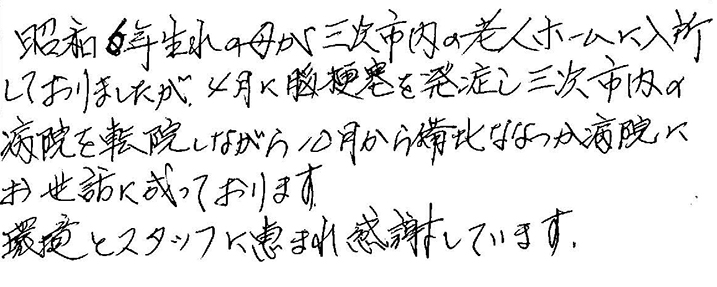 昭和6年生れの母が三次市内の老人ホームに入所
しておりましたが、4月に脳梗塞を発症し三次市内の
病院を転院しながら10月から備北ななつか病院に
お世話に成っております。
環境とスタッフに恵まれ感謝しています。